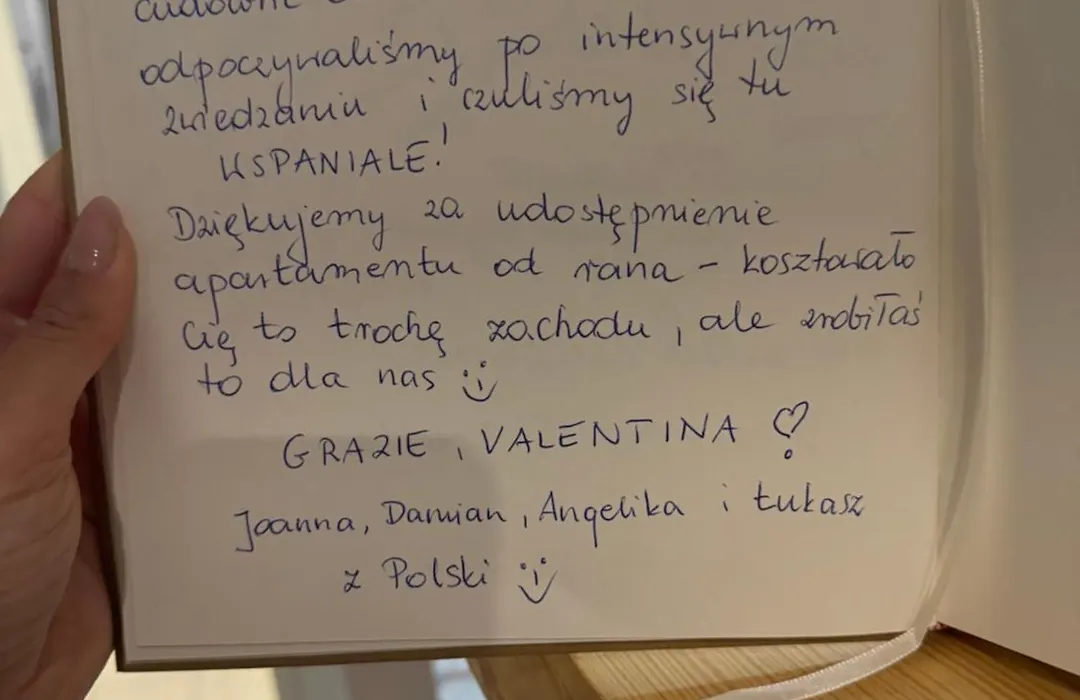 cudowne
odpoczywaliśmy po intensywnym
zwiedzaniu i czuliśmy się tu
WSPANIALE!
Dziękujemy za udostępnienie
apartamentu od rana - kosztowało
Cię to trochę zachodu, ale zrobiłaś
to dla nas
GRAZIE, VALENTINA
Joanna, Damian, Angelika i Łukasz
z Polski